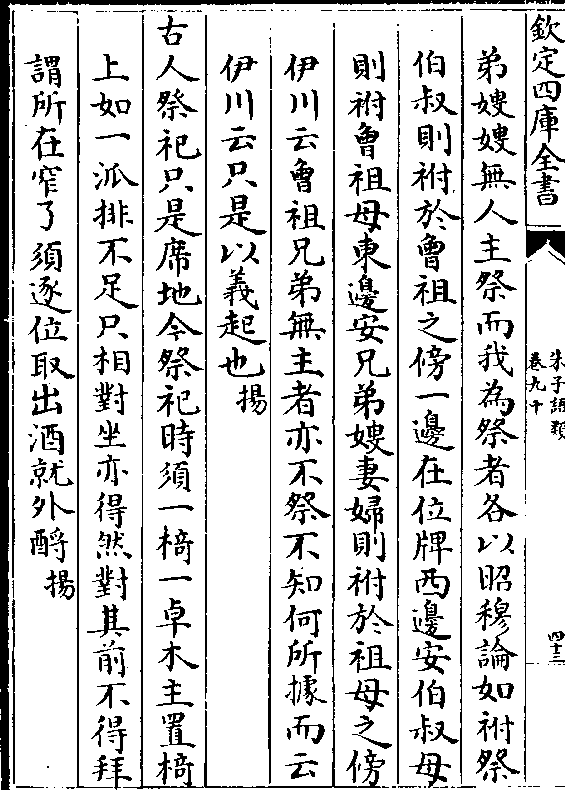 欽定四庫全書
朱子語類
卷九十
四十三
弟嫂嫂無人主祭而我為祭者各以昭穆論如祔祭
伯叔則祔於曾祖之傍一邊在位牌西邊安伯叔母
則祔曾祖母東邊安兄弟嫂妻婦則祔於祖母之傍
伊川云曾祖兄弟無主者亦不祭不知何所據而云
伊川云只是以義起也揚
古人祭祀只是席地今祭祀時須一椅一卓木主置椅
上如一派排不足只相對坐亦得然對其前不得拜
謂所在窄了須逐位取出酒就外酹揚